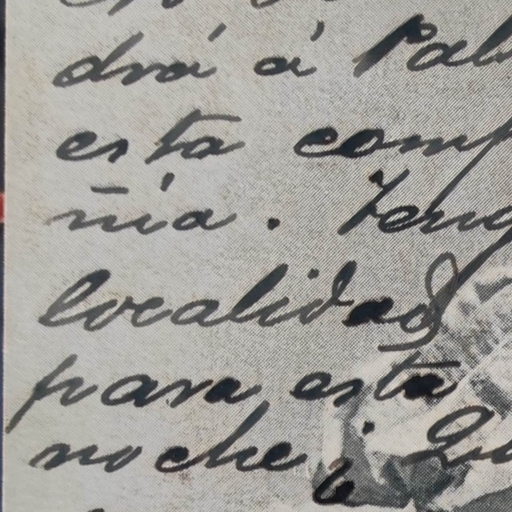 drá á Pal
esta comp
ñia. Teng
localidad
para esta
noche. ¿Qu